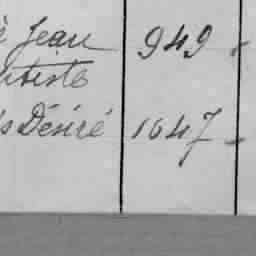 Jean 949
tiste
Désiré 1647